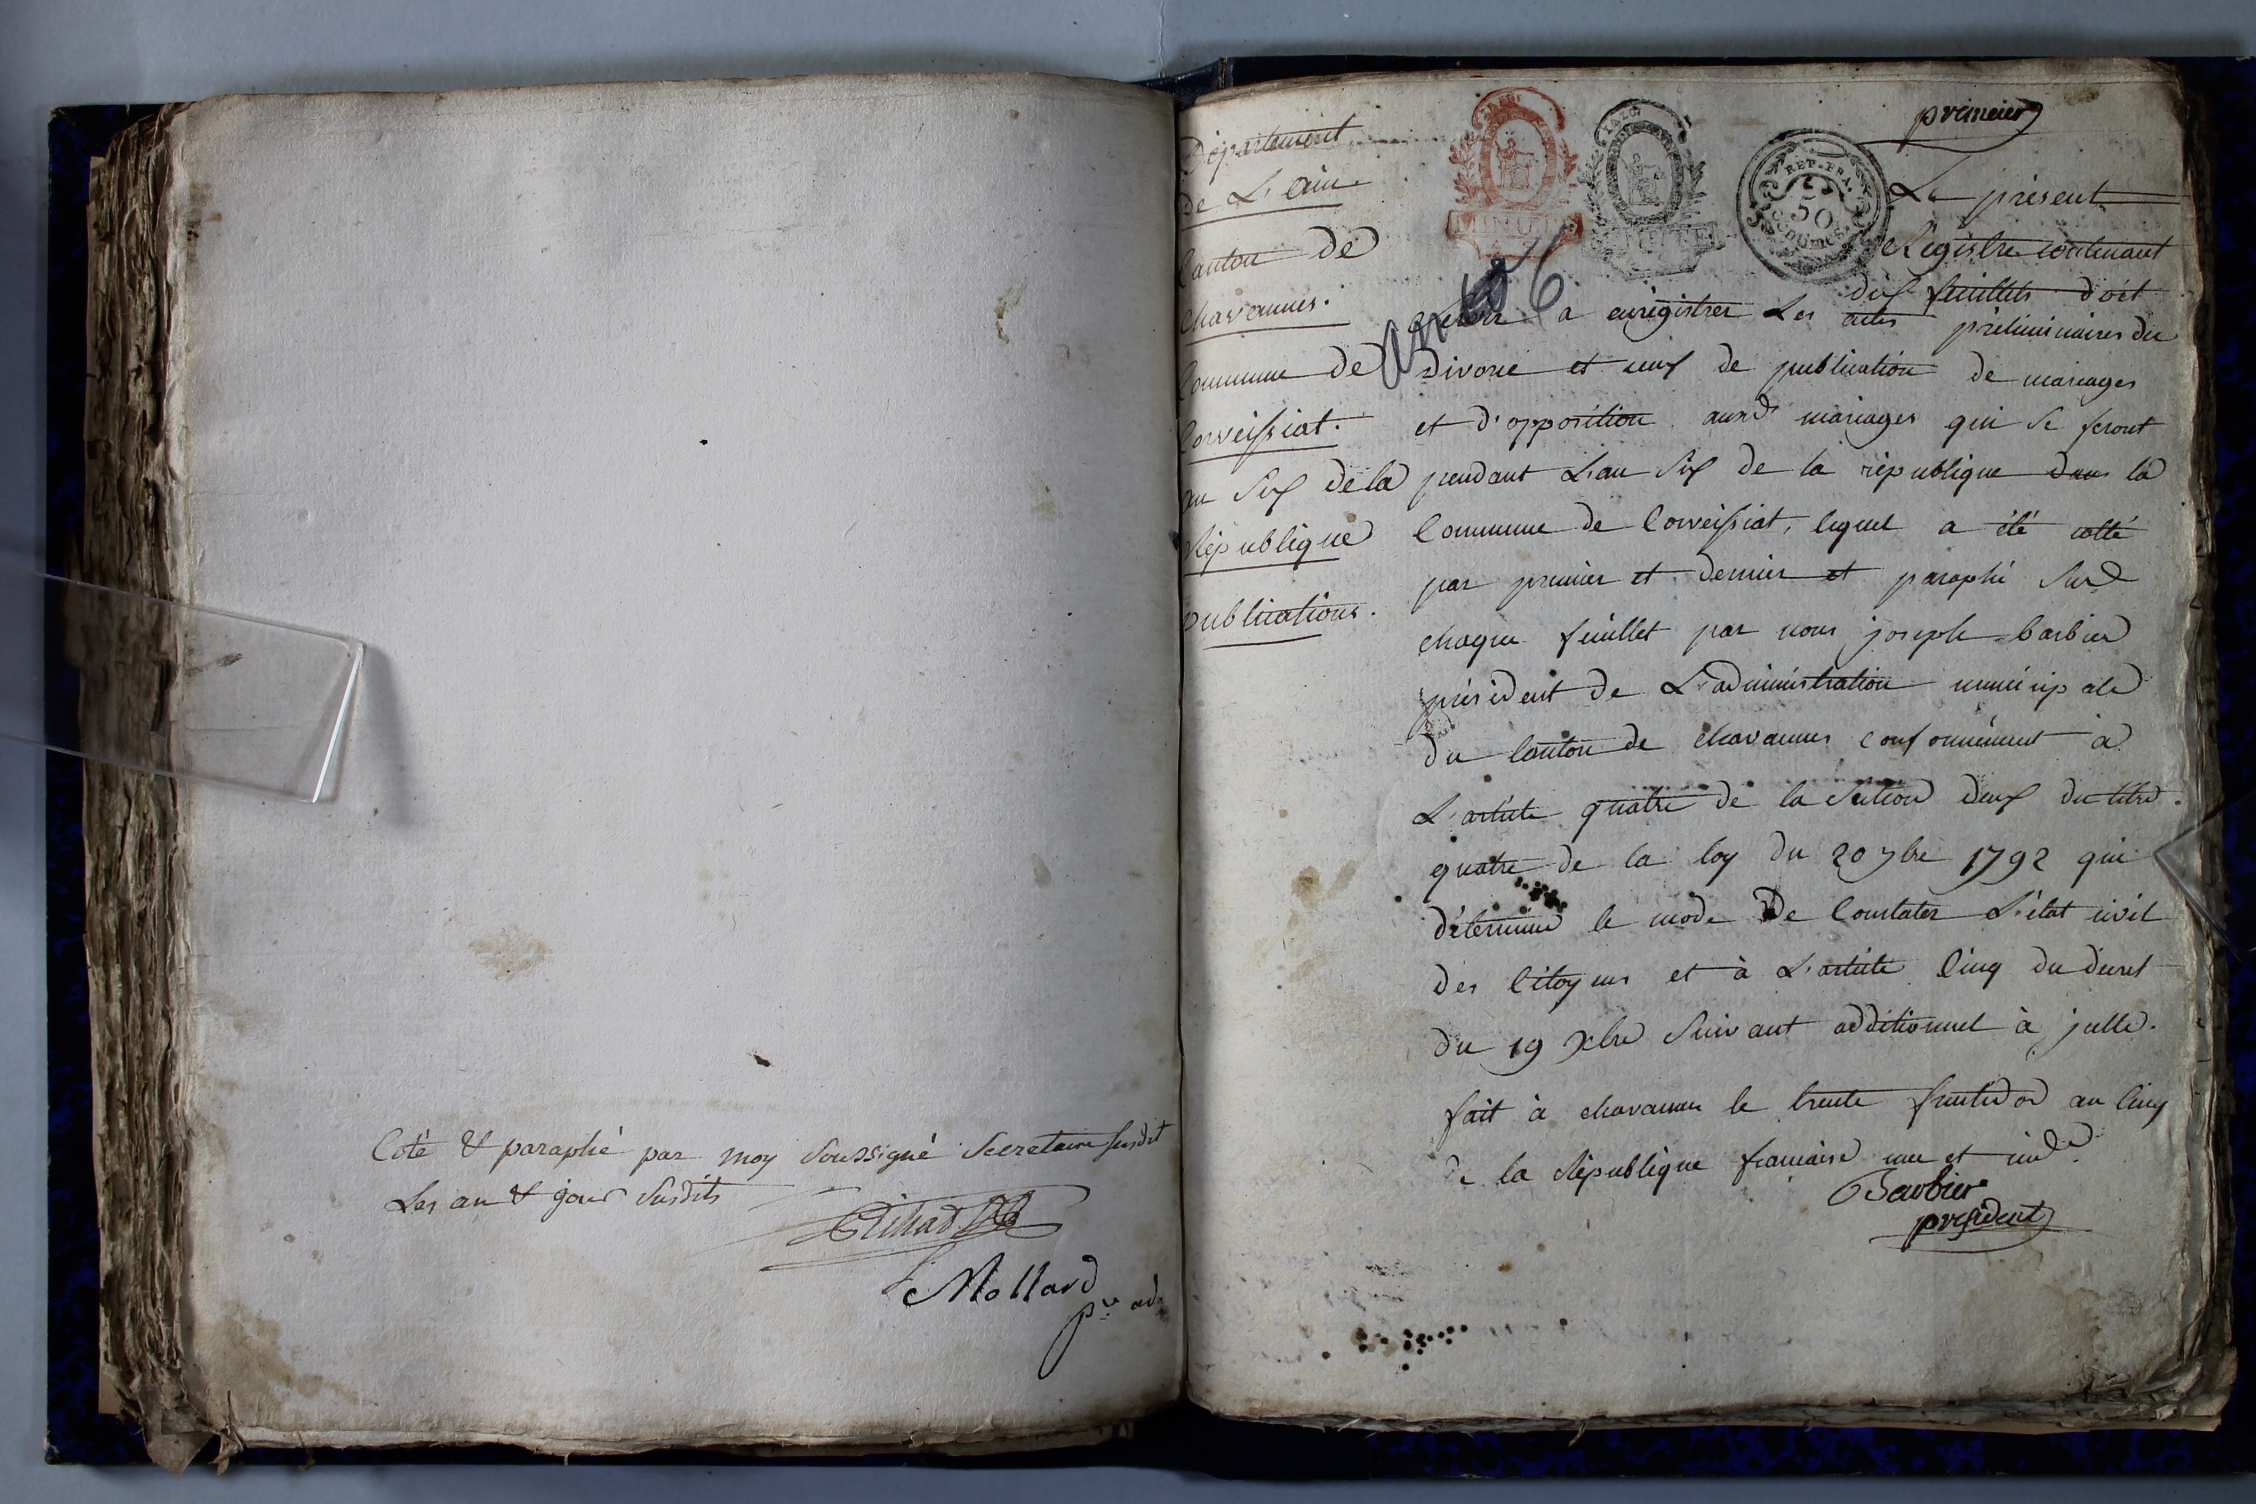 Coté & paraphé par moy soussigné Secretaire susdit
Les an & jour Susdits
Mollard
premier
Département
de L'Ain
Canton de
Chavannes.
Commune de
Corveissiat.
an Six de la
République
publications.
REP. FRA.
50
Centimes
MINUTE
Le présent
Régistre contenant
dix feuillets doit
servir a enrégistrer Les actes préliminaires du
Divorce et ceux de publication de mariages
et d'opposition auxds mariages qui se feront
pendant L'an Six de la république dans la
Commune de Corveissiat, lequel a été cotté
par premier et dernier et paraphé sur
chaque feuillet par nous joseph barbier
président de L'administration municipale
du Canton de chavannes conformément à
L'article quatre de la Section deux du titre
quatre de la loy du 20 7bre 1792 qui
détermine le mode de Constater L'état civil
des Citoyens et à L'article Cinq du décret
du 19 Xbre Suivant additionnel à jcelle.
fait à chavannes le trente fructidor an Cinq
de la République française une et ind.
Barbier
president